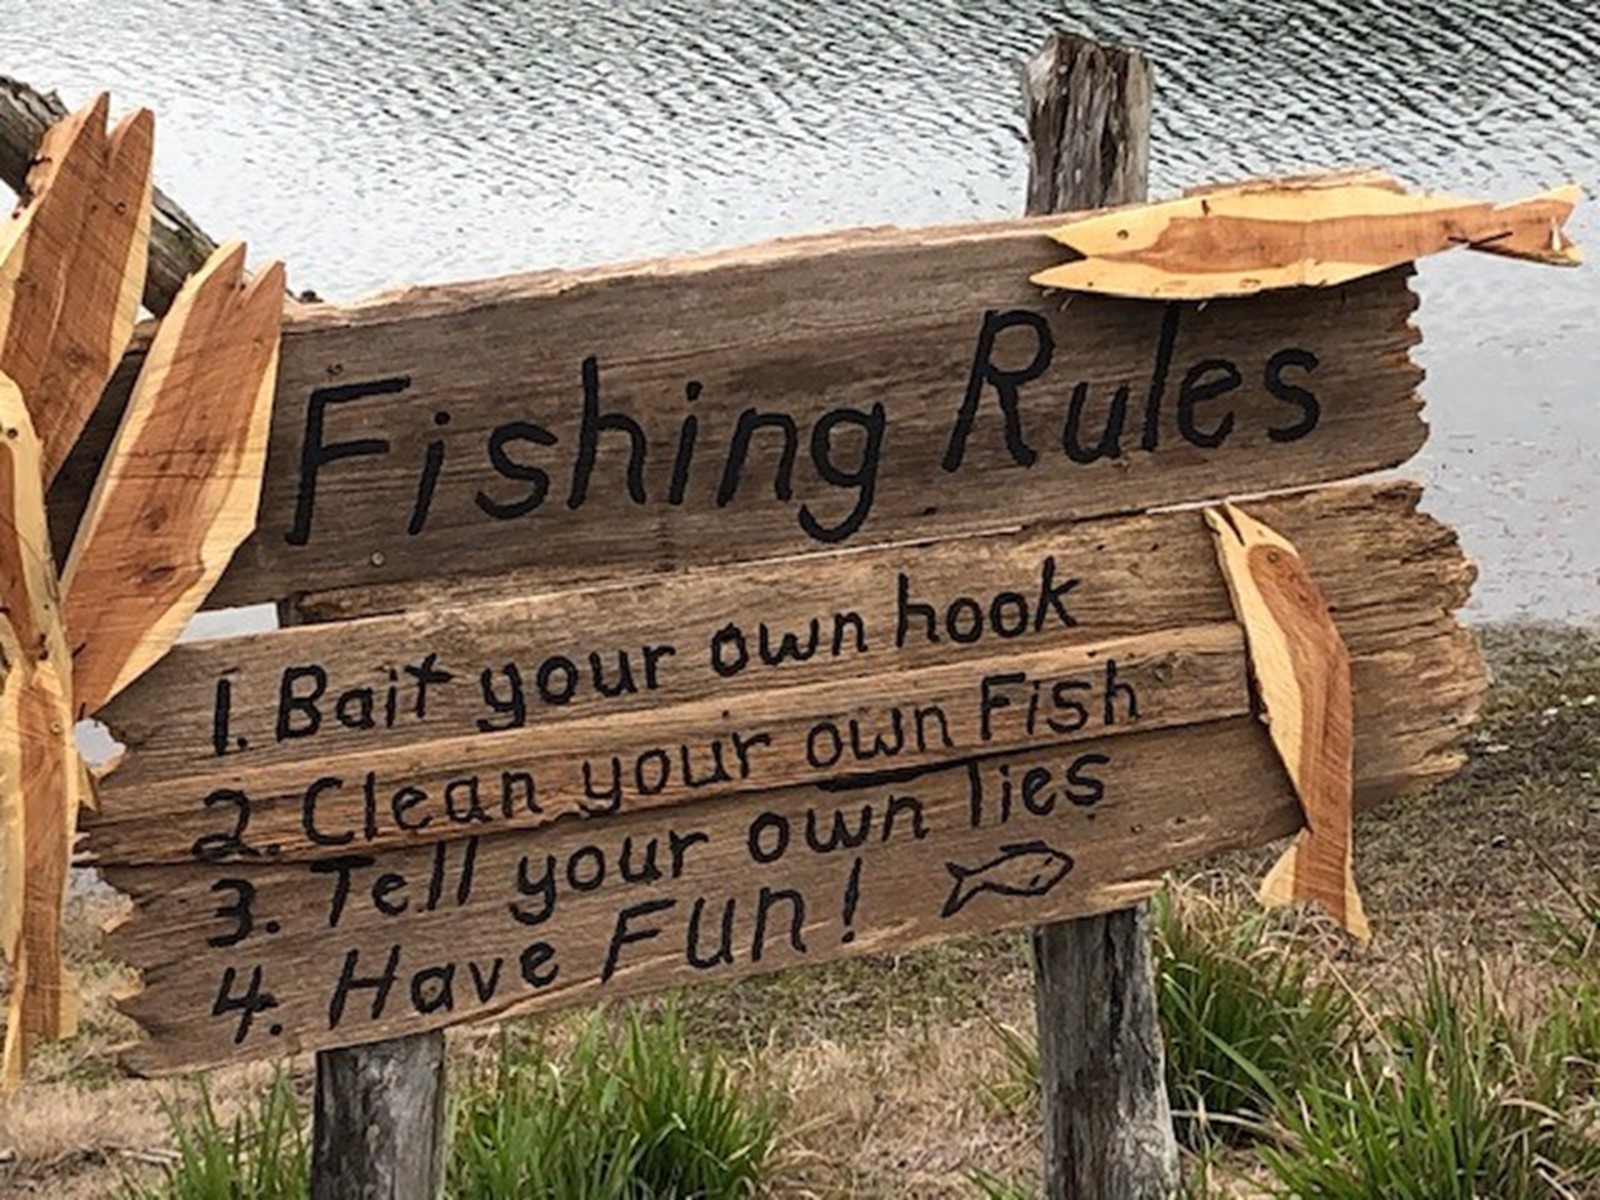 Fishing Rules
1. Bait your own hook
2. Clean your own Fish
3. Tell your own lies
4. Have Fun!